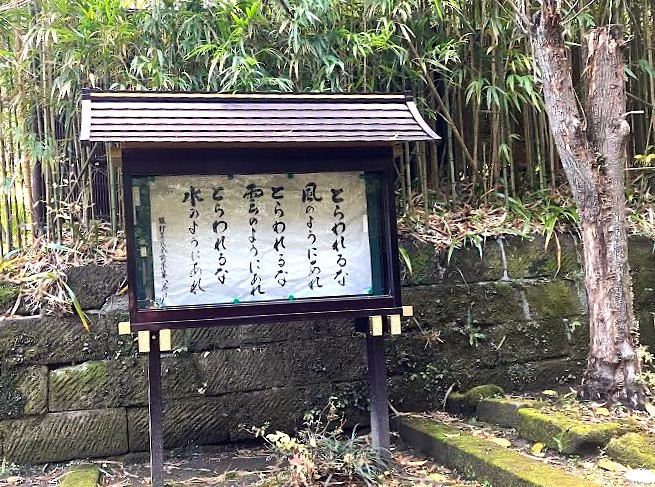 とらわれるな
風のようにあれ
とらわれるな
雲のようにあれ
とらわれるな
水のようにあれ